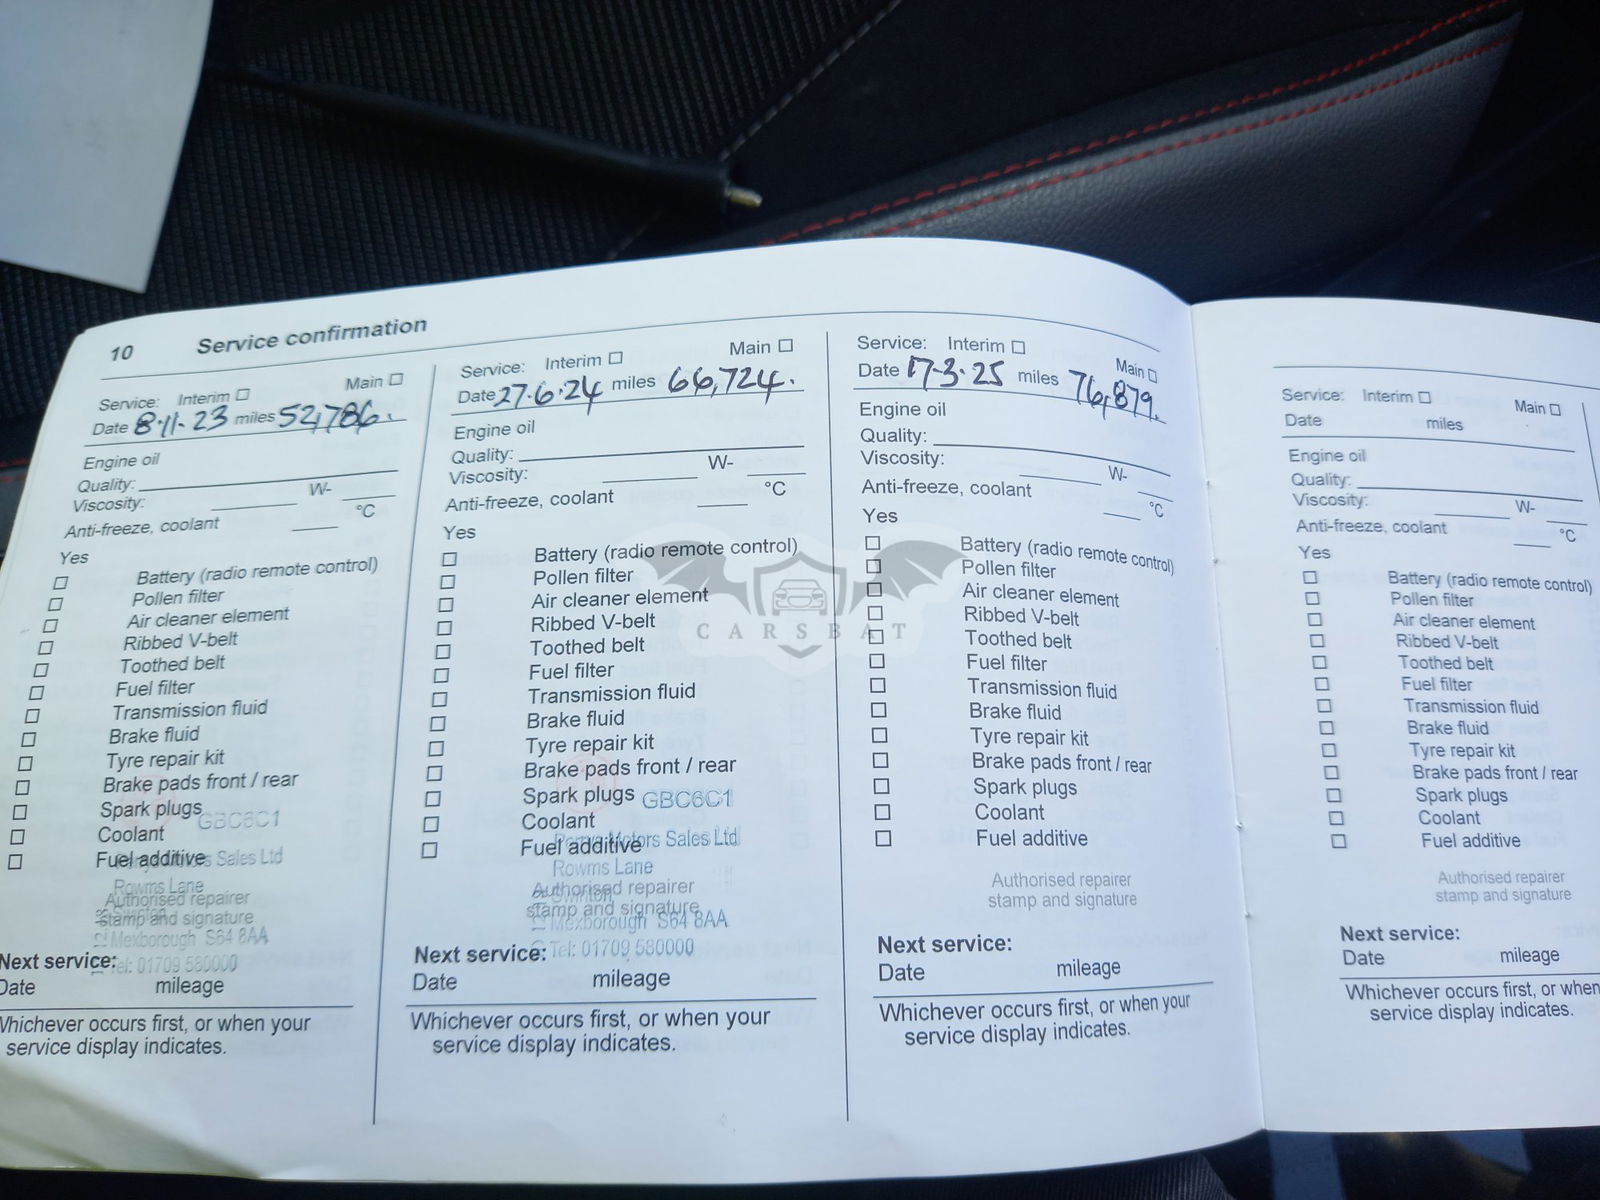 10 Service confirmation
Service: Interim Main
Date 8.11.23 miles 52,786.
Engine oil
Quality:
Viscosity: W-
Anti-freeze, coolant °C
Yes
Battery (radio remote control)
Pollen filter
Air cleaner element
Ribbed V-belt
Toothed belt
Fuel filter
Transmission fluid
Brake fluid
Tyre repair kit
Brake pads front / rear
Spark plugs
GBC6C1
Coolant
Fuel additive
Motors Sales Ltd
Rowms Lane
Authorised repairer
Swinton
stamp and signature
Mexborough S64 8AA
Next service:
Tel: 01709 580000
Date mileage
Whichever occurs first, or when your
service display indicates.
Service: Interim Main
Date 27.6.24 miles 66,724.
Engine oil
Quality:
Viscosity: W-
Anti-freeze, coolant °C
Yes
Battery (radio remote control)
Pollen filter
Air cleaner element
Ribbed V-belt
Toothed belt
Fuel filter
Transmission fluid
Brake fluid
Tyre repair kit
Brake pads front / rear
Spark plugs GBC6C1
Coolant
Motors Sales Ltd
Fuel additive
Rowms Lane
Authorised repairer
Swinton
stamp and signature
Mexborough S64 8AA
Next service: Tel: 01709 580000
Date mileage
Whichever occurs first, or when your
service display indicates.
Service: Interim Main
Date 17-3-25 miles 76,879.
Engine oil
Quality:
Viscosity: W-
Anti-freeze, coolant °C
Yes
Battery (radio remote control)
Pollen filter
Air cleaner element
Ribbed V-belt
Toothed belt
Fuel filter
Transmission fluid
Brake fluid
Tyre repair kit
Brake pads front / rear
Spark plugs
Coolant
Fuel additive
Authorised repairer
stamp and signature
Next service:
Date mileage
Whichever occurs first, or when your
service display indicates.
Service: Interim Main
Date miles
Engine oil
Quality:
Viscosity: W-
Anti-freeze, coolant °C
Yes
Battery (radio remote control)
Pollen filter
Air cleaner element
Ribbed V-belt
Toothed belt
Fuel filter
Transmission fluid
Brake fluid
Tyre repair kit
Brake pads front / rear
Spark plugs
Coolant
Fuel additive
Authorised repairer
stamp and signature
Next service:
Date mileage
Whichever occurs first, or when
service display indicates.
CARSBAT